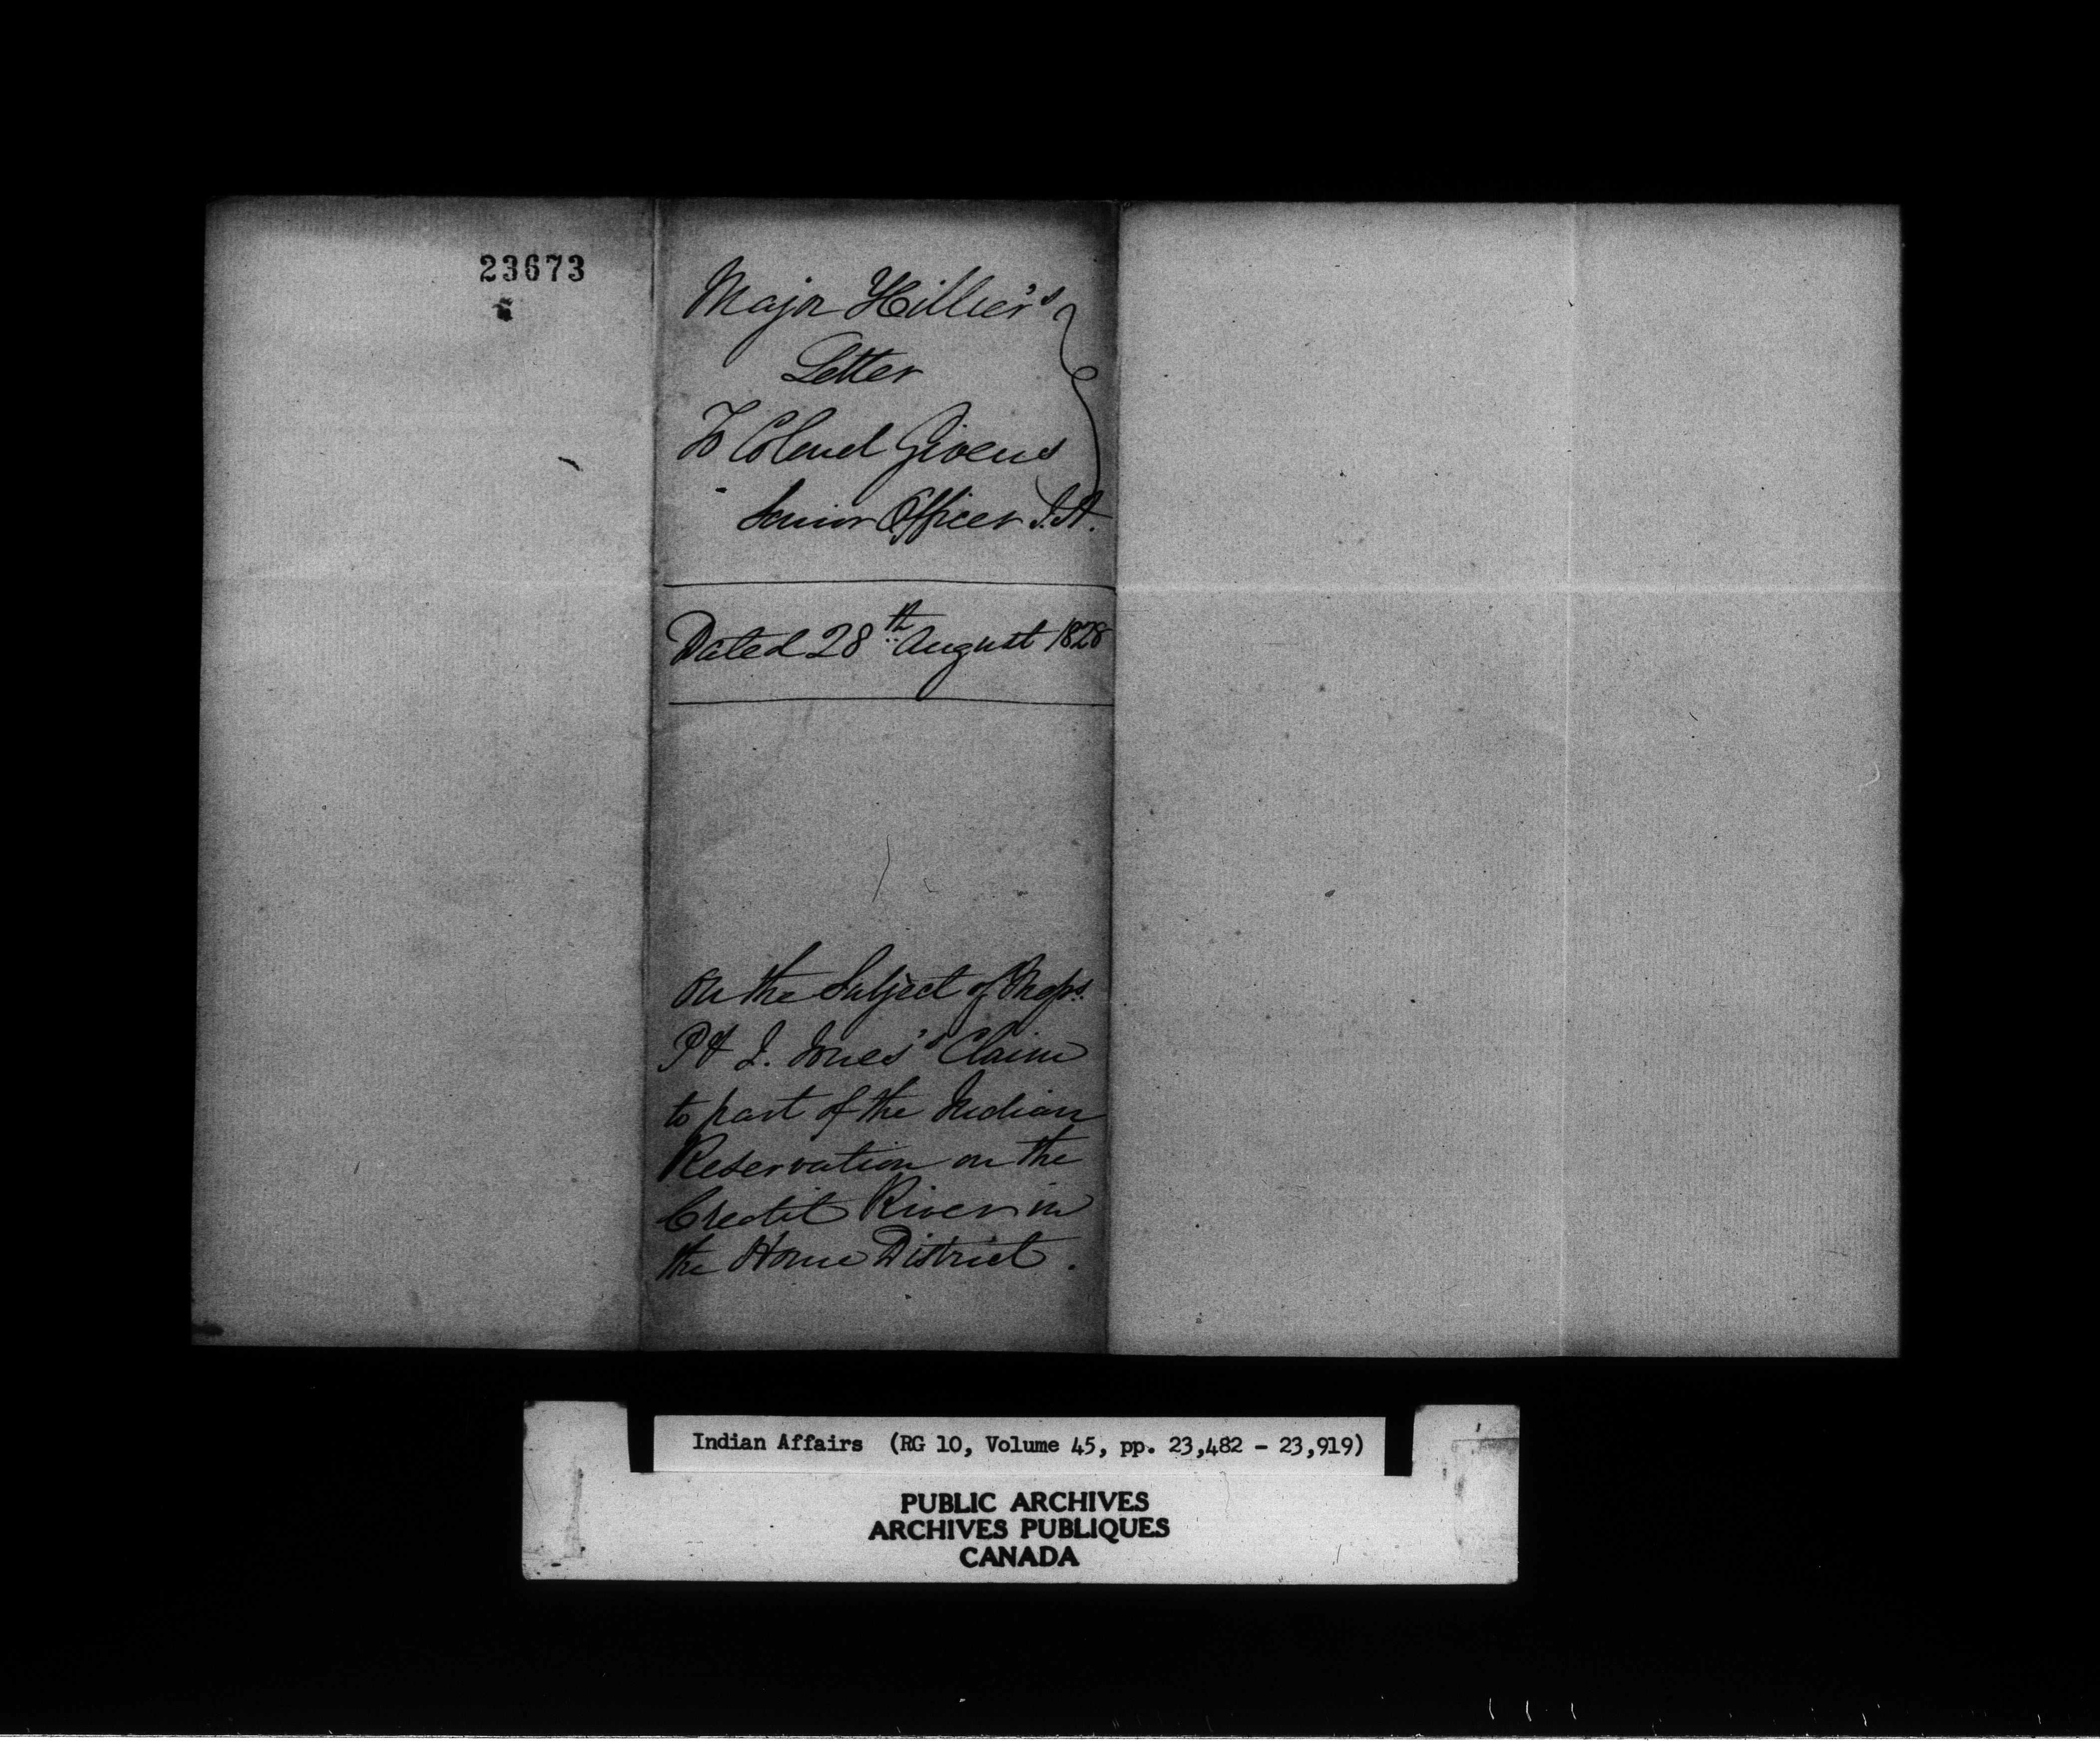 23673
Major Hillier's
Letter
To Colonel Givens
Senior Officer I.A.
Dated 28th August 1828
On the Subject of Messrs.
P & J. Jones's Claim
to part of the Indian
Reservation on the
Credit River in
the Home District.
Indian Affairs (RG 10, Volume 45, pp. 23,482 - 23,919)
PUBLIC ARCHIVES
ARCHIVES PUBLIQUES
CANADA